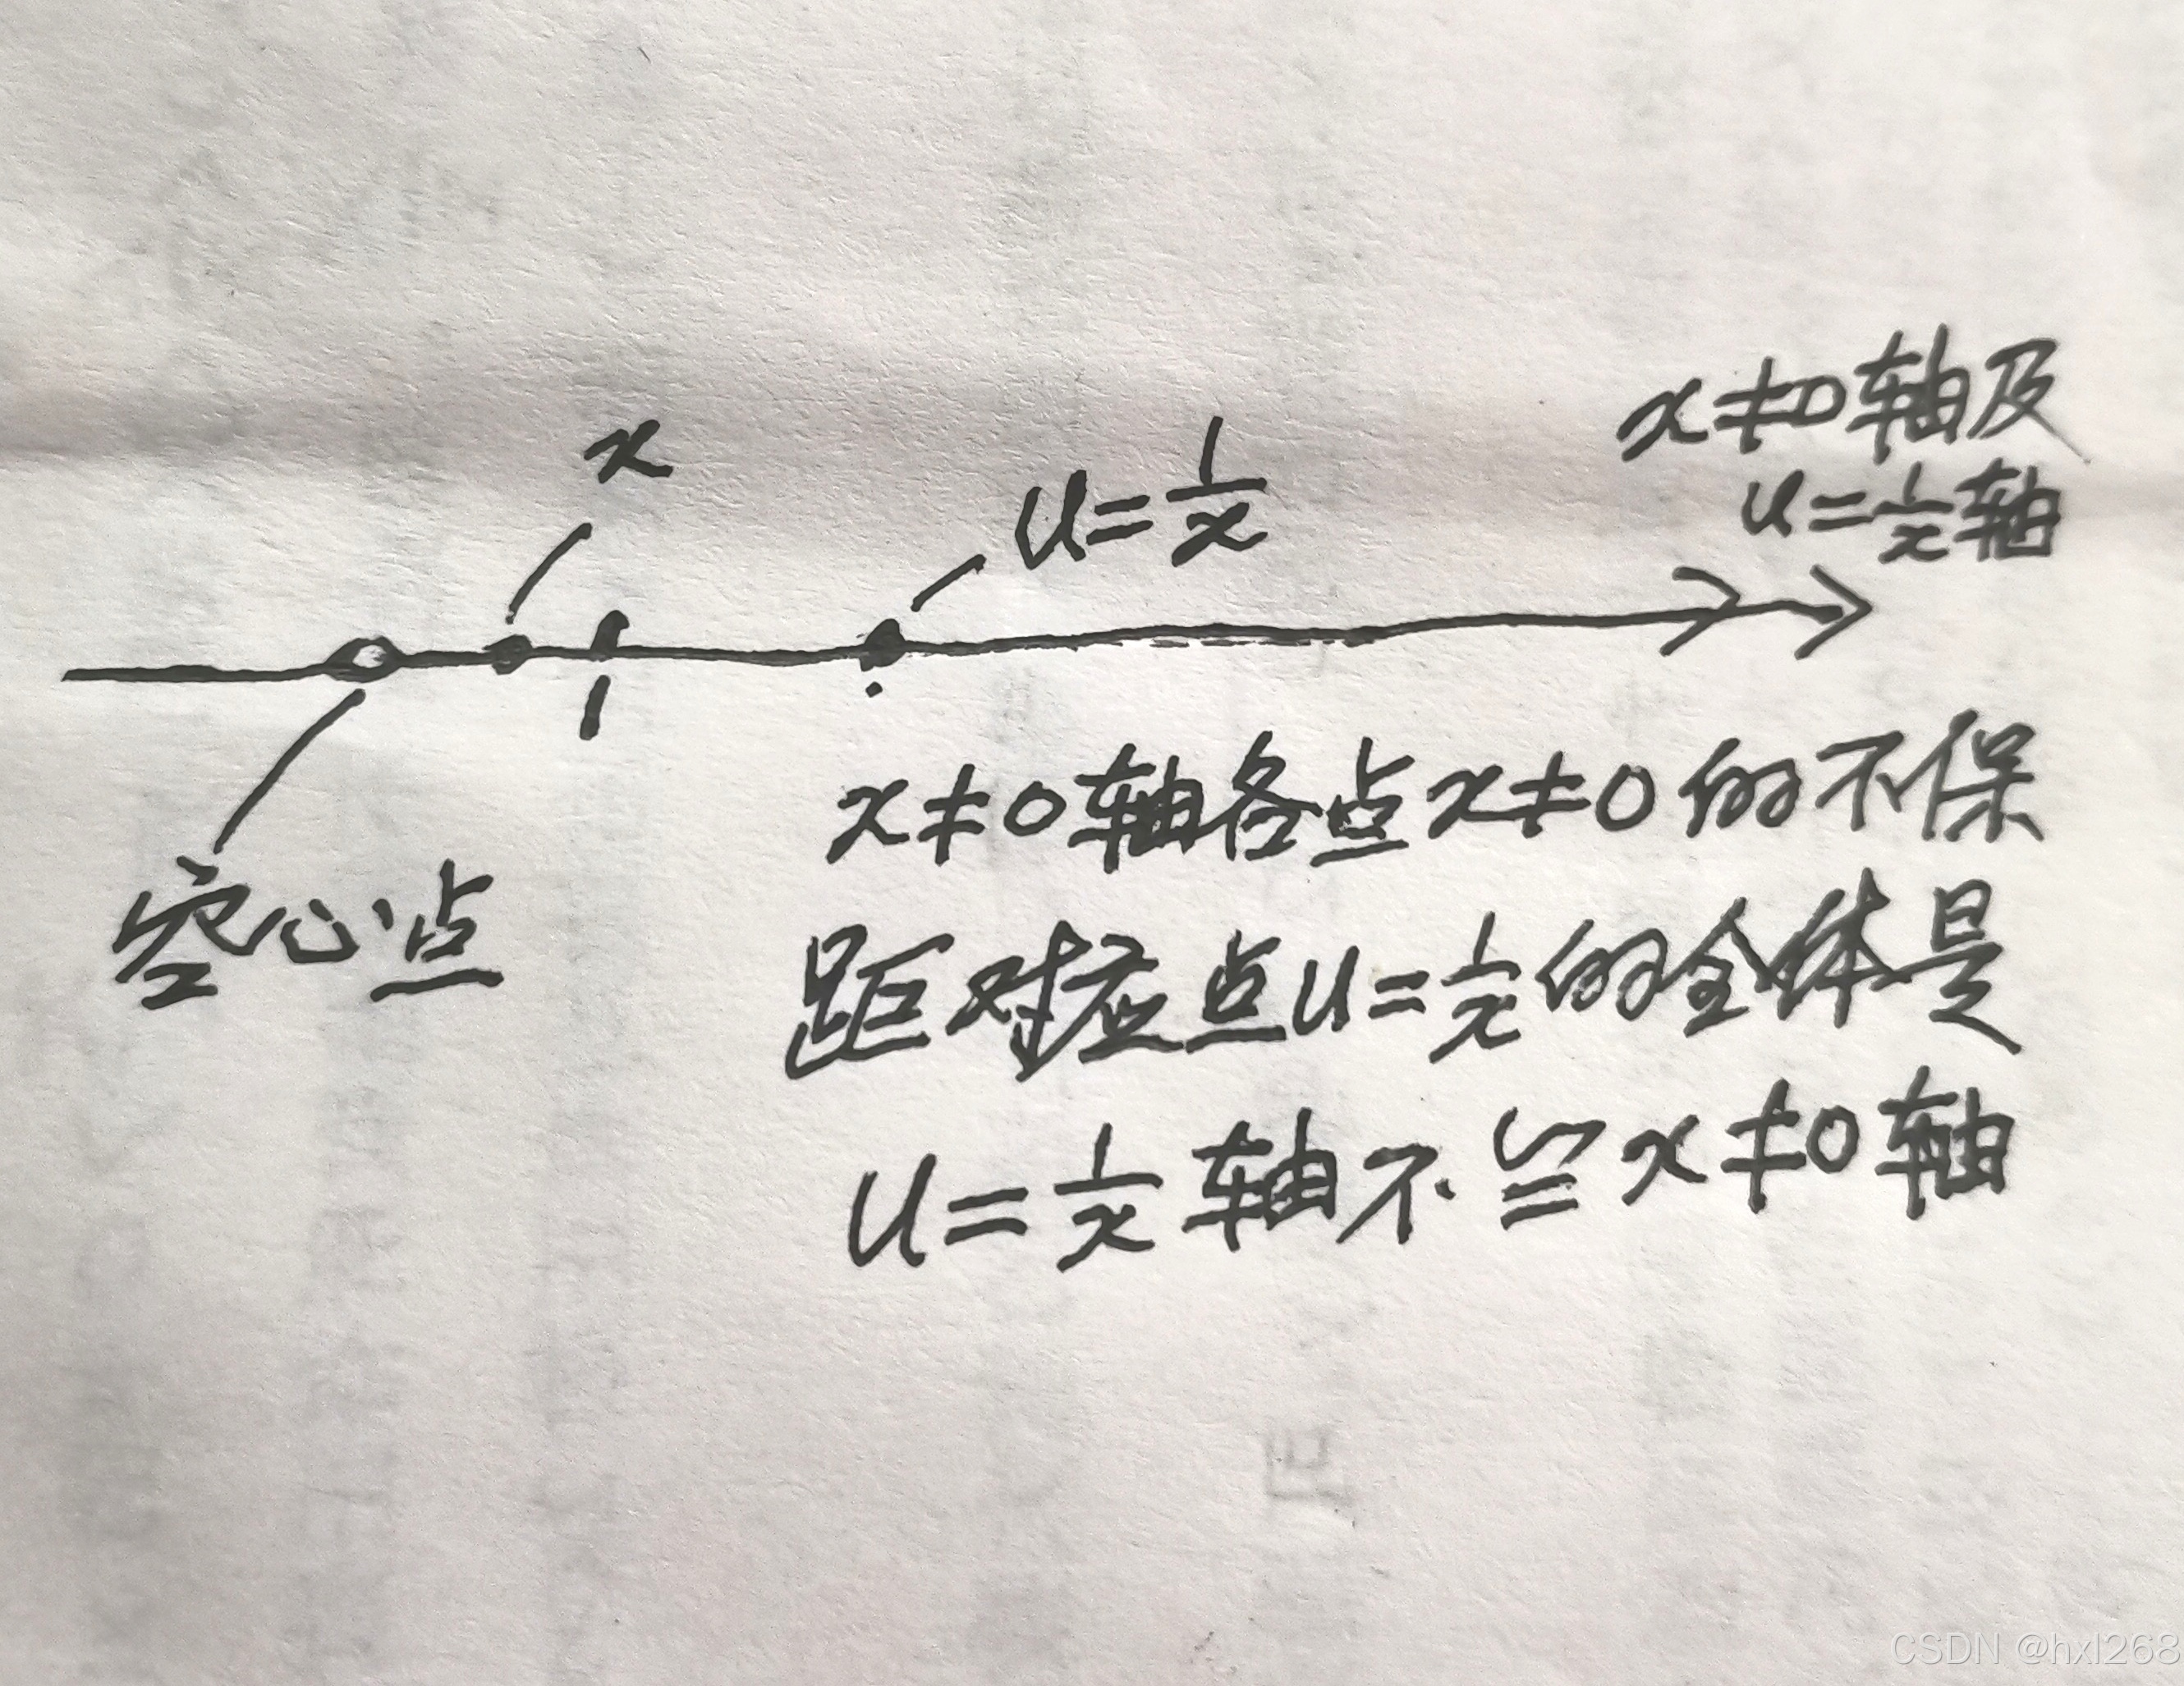 x≠0轴及
u=1/x轴
x
u=1/x
1
空心点
x≠0轴各点x≠0的不保
距对应点u=1/x的全体是
u=1/x轴不≌x≠0轴
CSDN @hxl268